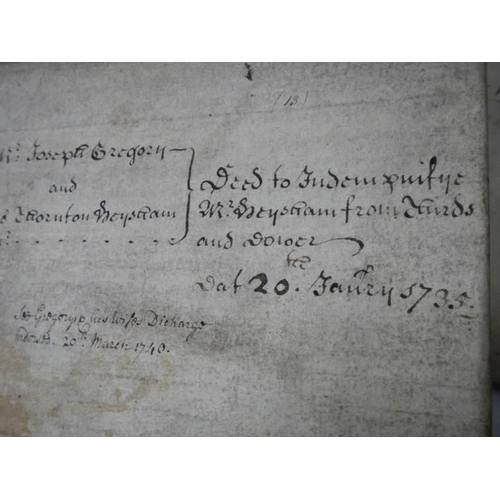 (13)
Mr. Joseph Gregory
and
Thornton Heysham
Deed to Indempnifye
Mr. Heysham from Thirds
and Dower
Dat 20th. Janry 1735
See Gregory & his Wifes Discharge
Indorsed 20th March 1740.